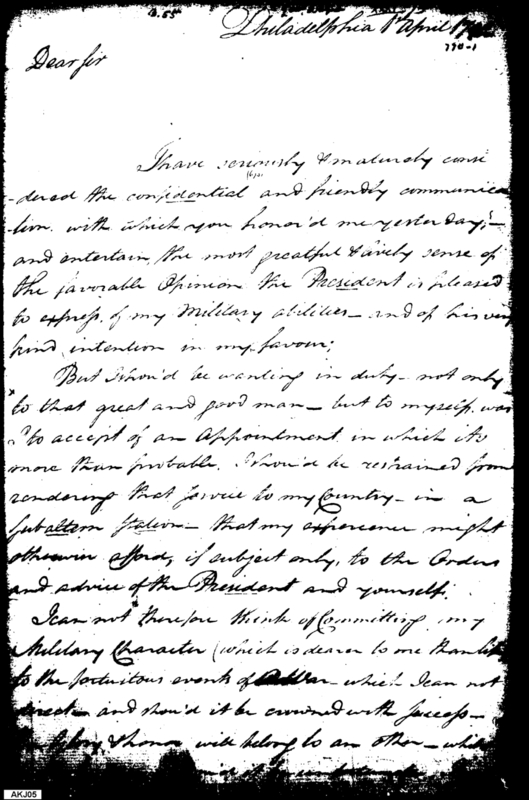 Philadelphia 1st April 17
770-1
Dear Sir
I have seriously & maturely consi
-dered the confidential and friendly communica
-tion with which you honor'd me yesterday,-
and entertain the most greatful & lively sense of
the favorable Opinion the President is pleased
to express of my Military abilities - and of his very
kind intention in my favour;
But I shou'd be wanting in duty - not only
to that great and good man - but to myself, was
I to accept of an Appointment in which its
more than probable I shou'd be restrained from
rendering that service to my Country - in a
Subaltern Station - that my experience might
otherwise afford, if subject only, to the Orders
and advice of the President and yourself.
I can not therefore think of Committing my
Military Character (which is dearer to me than life
to the fortuitous events of War - which I can not
direct - and shou'd it be crowned with success -
Glory & honor will belong to an other - while
AKJ05